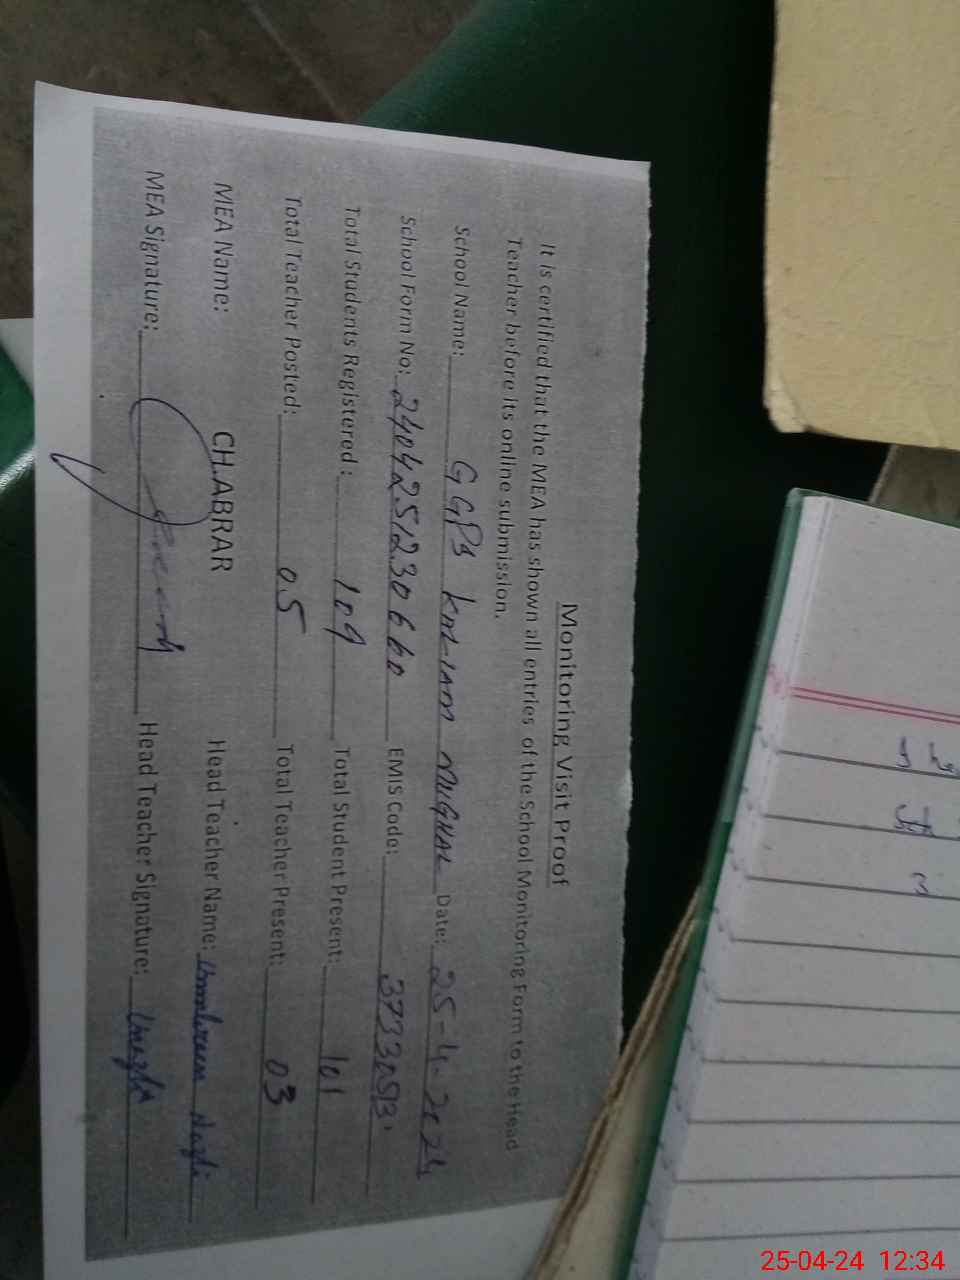 Monitoring Visit Proof
It is certified that the MEA has shown all entries of the School Monitoring Form to the Head
Teacher before its online submission.
School Name: GGPS KALIAM MUGHAL Date: 25-4-2024
School Form No: 2404251230660 EMIS Code: 37330513
Total Students Registered: 109 Total Student Present: 101
Total Teacher Posted: 05 Total Teacher Present: 03
MEA Name: CH.ABRAR Head Teacher Name: Umbreen Nazli
MEA Signature: Head Teacher Signature:
25-04-24 12:34